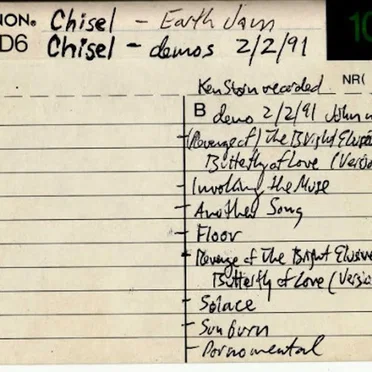 NON® Chisel - Earth Jam
D6 Chisel - demos 2/2/91
10
Ken Stoin recorded NR(
B demo 2/2/91 John
(Revenge of) The Bright Elusi
Butterfly of Love (Versio
Invoking the Muse
Another Song
Floor
Revenge of The Bright Elusive
Butterfly of Love (Versio
Solace
Sunburn
Pornomental